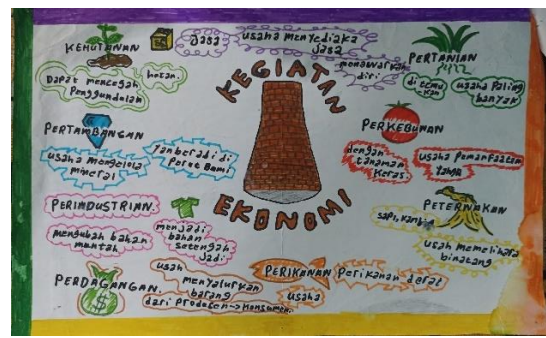 KEHUTANAN
Dapat mencegah
Penggundulan
hotan.
Jasa
usaha menyediaka
Jasa
menawarkan
diri.
PERTANIAN
di temu
kan
usaha Paling
banyak
KEGIATAN
EKONOMI
PERTAMBANGAN
usaha mengelola
mineral
Yanberada di
Perut Bumi
PERKEBUNAN
dengan
tanaman
Keras
usaha Pemanfaatan
PERINDUSTRIAN.
mengubah bahan
mentah
menjadi
bahan
setengah
Jadi.
PETERNAKAN
sapi,
usah memelihara
binatang
PERDAGANGAN.
$
usah
menyalurkan
barang
dari Produsen->Konsumen.
PERIKANAN
Perikanan darat
usaha